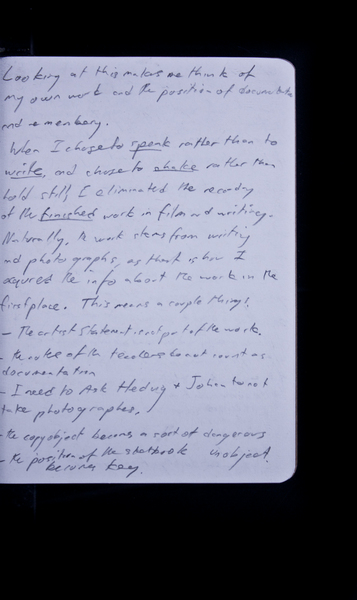 Looking at this makes me think of
my own work and the position of documentation
and memory.
When I chose to speak rather than to
write, and chose to shake rather than
hold still I eliminated the recording
of the finished work in film and writing.
Naturally, the work stems from writing
and photographs, as that is how I
aquired the info about the work in the
first place. This means a couple things!
- The artist statement is not part of the work.
- the of the do not count as
documentation
- I need to Ask Hedvig + Johan to not
take photographs.
- the copy object becomes a sort of dangerous
object.
- the position of the sketbook
becomes key.